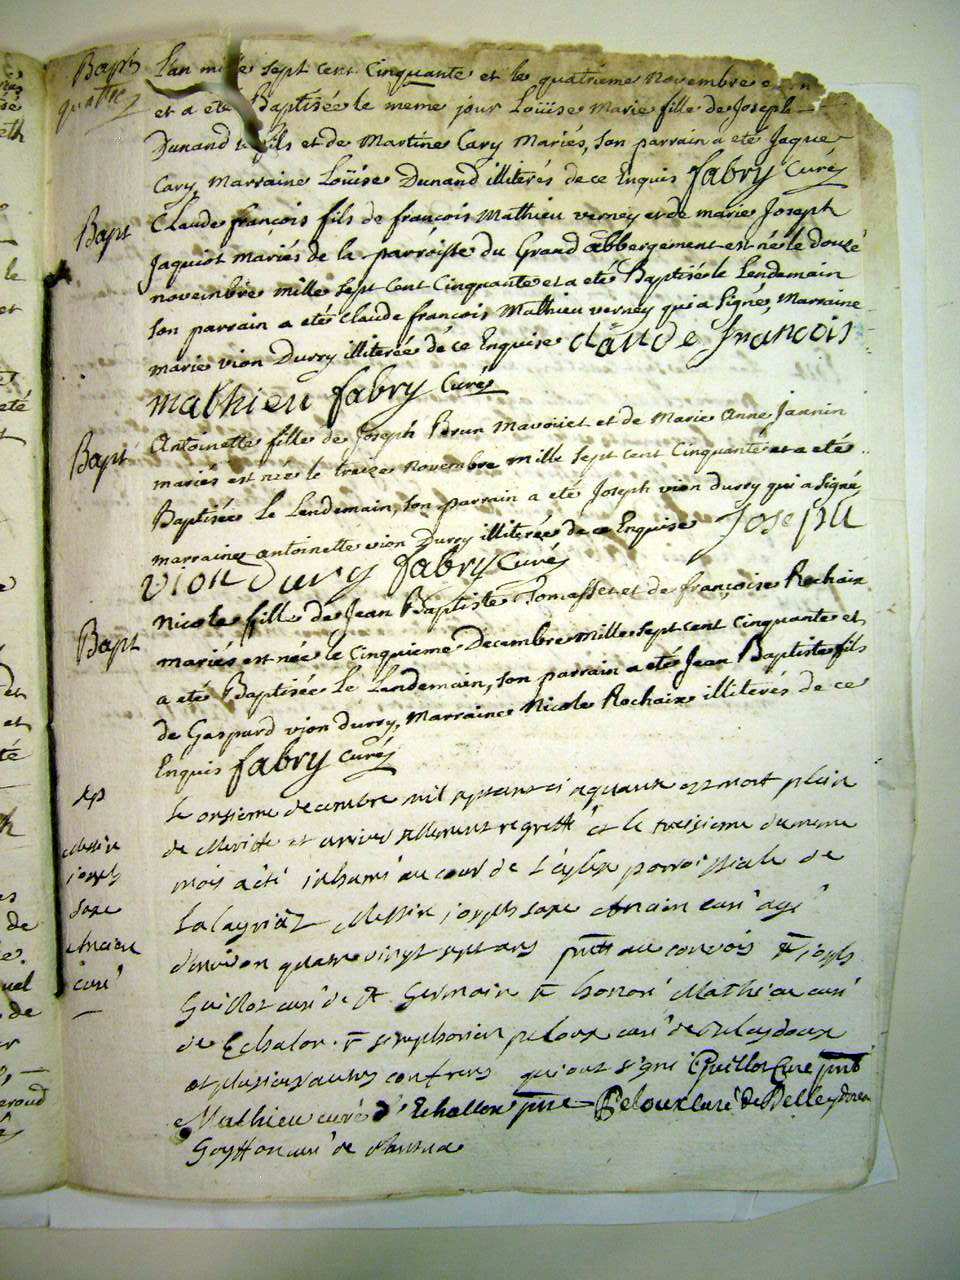 Bapt L'an mille sept cent Cinquante et le quatrieme novembre
quatre et a eté Baptisée le meme jour Loüise Marie fille de Joseph
Dunand fils et de Martine Cary Mariés, son parrain a eté Jaque
Cary, Marraine Loüise Dunand illiterés de ce Enquis fabry Curé
Bapt Claude françois fils de françois Mathieu verney et de marie Joseph
Jaquiot mariés de la parroisse du Grand abbergement est né le douze
novembre mille sept Cent Cinquante et a eté Baptisé le Lendemain
son parrain a eté Claude françois Mathieu verney qui a signé, Marraine
marie vion Durry illiterée de ce Enquise claude francois
mathieu fabry Curé
Bapt Antoinette fille de Joseph Brun Mavoüet et de Marie Anne Jannin
mariés est née le treize novembre mille sept cent Cinquante et a eté
Baptisée Le Lendemain, son parrain a eté Joseph vion durry qui a signé,
marraine antoinette vion Durry illiterée de ce Enquise Joseph
vion durry fabry Curé
Bapt Nicole fille de Jean Baptiste Tomasset et de françoise Rochaix
mariés est née le Cinquieme Decembre mille sept cent Cinquante et
a eté Baptisée Le Lendemain, son parrain a eté Jean Baptiste fils
de Gaspard vion durry, Marraine Nicole Rochaix illiterés de ce
Enquis fabry Curé
le onsieme decembre mil septcent cinquante est mort plein
de Merite et regretté et le treisieme du meme
mois a été inhumé au cœur de L'église parroissiale de
Messire
joseph
Ancien
curé
Lalayriaz Messire joseph Ancien curé agé
d'environ quatre vingt sept ans pnts au convois rd joseph
Guillot curé de St Germain rd honoré Mathieu curé
de Echalon rd simphorien peloux curé de Belleydoux
et plusieurs autres confreres qui ont signé Guillot Curé pnt
Mathieu curé d'Echallon pnt Peloux Curé de Belleydoux
curé de Nantua